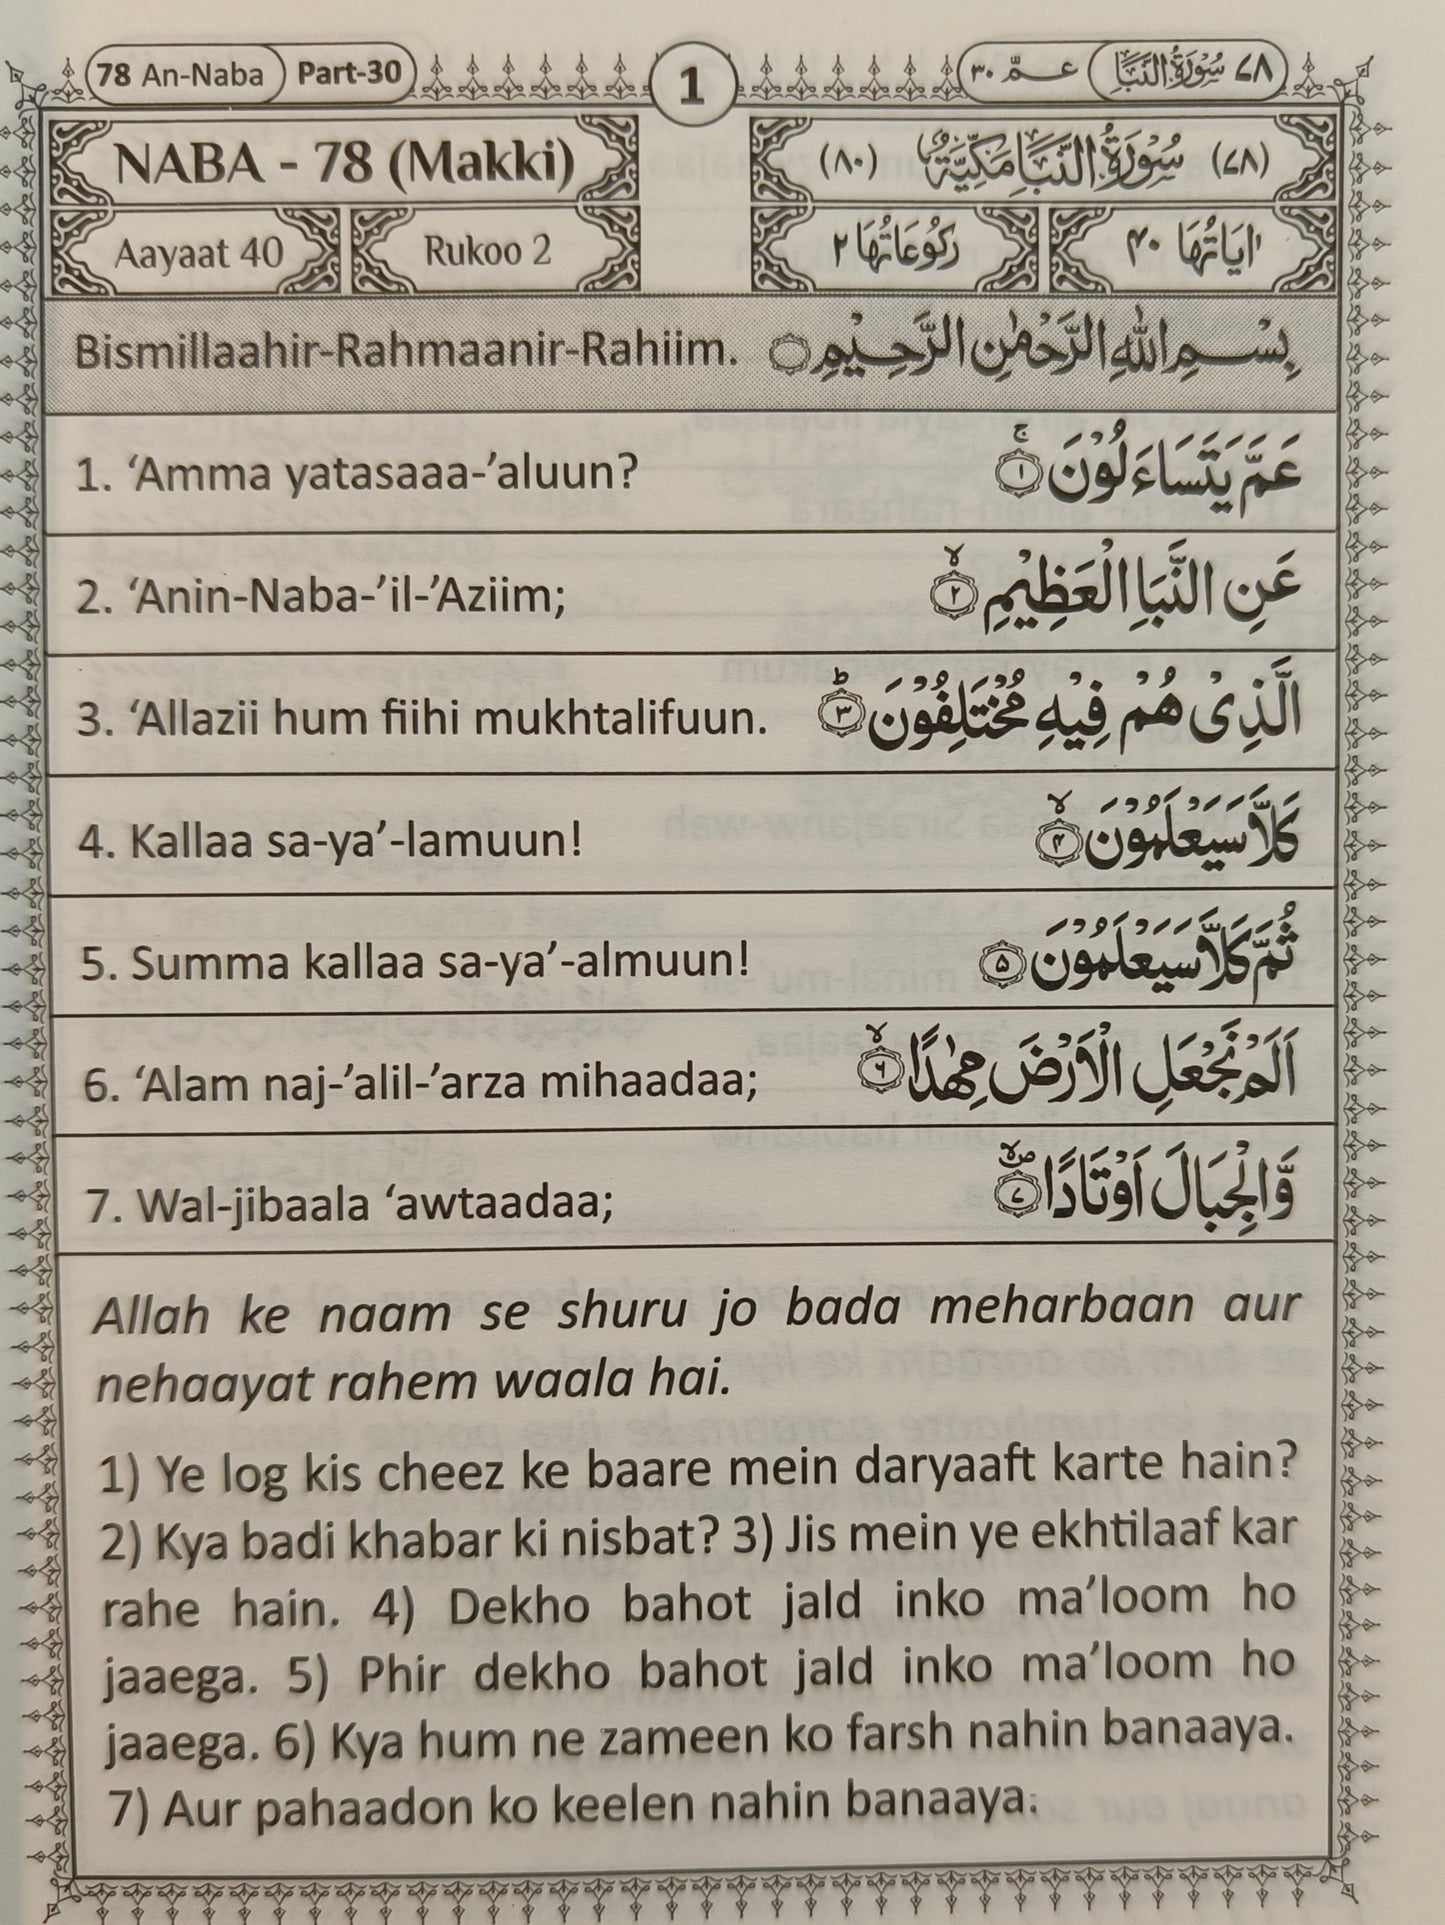 78 An-Naba Part-30 1 عـمّ ٣٠ سُوْرَةُ النَّبَاِ ٧٨
NABA - 78 (Makki) (٧٨) سُوْرَةُ النَّبَاِ مَكِّيَّةٌ (٨٠)
Aayaat 40 Rukoo 2 اٰيَاتُهَا ٤٠ رُكُوْعَاتُهَا ٢
Bismillaahir-Rahmaanir-Rahiim. بِسْمِ اللّٰهِ الرَّحْمٰنِ الرَّحِيْمِ
1. ‘Amma yatasaaa-’aluun? عَمَّ يَتَسَآءَلُوْنَ ۚ ١
2. ‘Anin-Naba-’il-’Aziim; عَنِ النَّبَاِ الْعَظِيْمِ ۙ ٢
3. ‘Allazii hum fiihi mukhtalifuun. الَّذِىْ هُمْ فِيْهِ مُخْتَلِفُوْنَ ؕ ٣
4. Kallaa sa-ya’-lamuun! كَلَّا سَيَعْلَمُوْنَ ۙ ٤
5. Summa kallaa sa-ya’-almuun! ثُمَّ كَلَّا سَيَعْلَمُوْنَ ٥
6. ‘Alam naj-’alil-’arza mihaadaa; اَلَمْ نَجْعَلِ الْاَرْضَ مِهٰدًا ۙ ٦
7. Wal-jibaala ‘awtaadaa; وَّالْجِبَالَ اَوْتَادًا ۪ۙ ٧
Allah ke naam se shuru jo bada meharbaan aur
nehaayat rahem waala hai.
1) Ye log kis cheez ke baare mein daryaaft karte hain?
2) Kya badi khabar ki nisbat? 3) Jis mein ye ekhtilaaf kar
rahe hain. 4) Dekho bahot jald inko ma’loom ho
jaaega. 5) Phir dekho bahot jald inko ma’loom ho
jaaega. 6) Kya hum ne zameen ko farsh nahin banaaya.
7) Aur pahaadon ko keelen nahin banaaya.